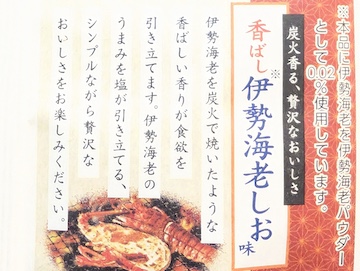 ※本品に伊勢海老を伊勢海老パウダー
として0.02%使用しています。
炭火香る、贅沢なおいしさ
香ばし伊勢海老しお味
※
伊勢海老を炭火で焼いたような
香ばしい香りが食欲を
引き立てます。伊勢海老の
うまみを塩が引き立てる、
シンプルながら贅沢な
おいしさをお楽しみください。